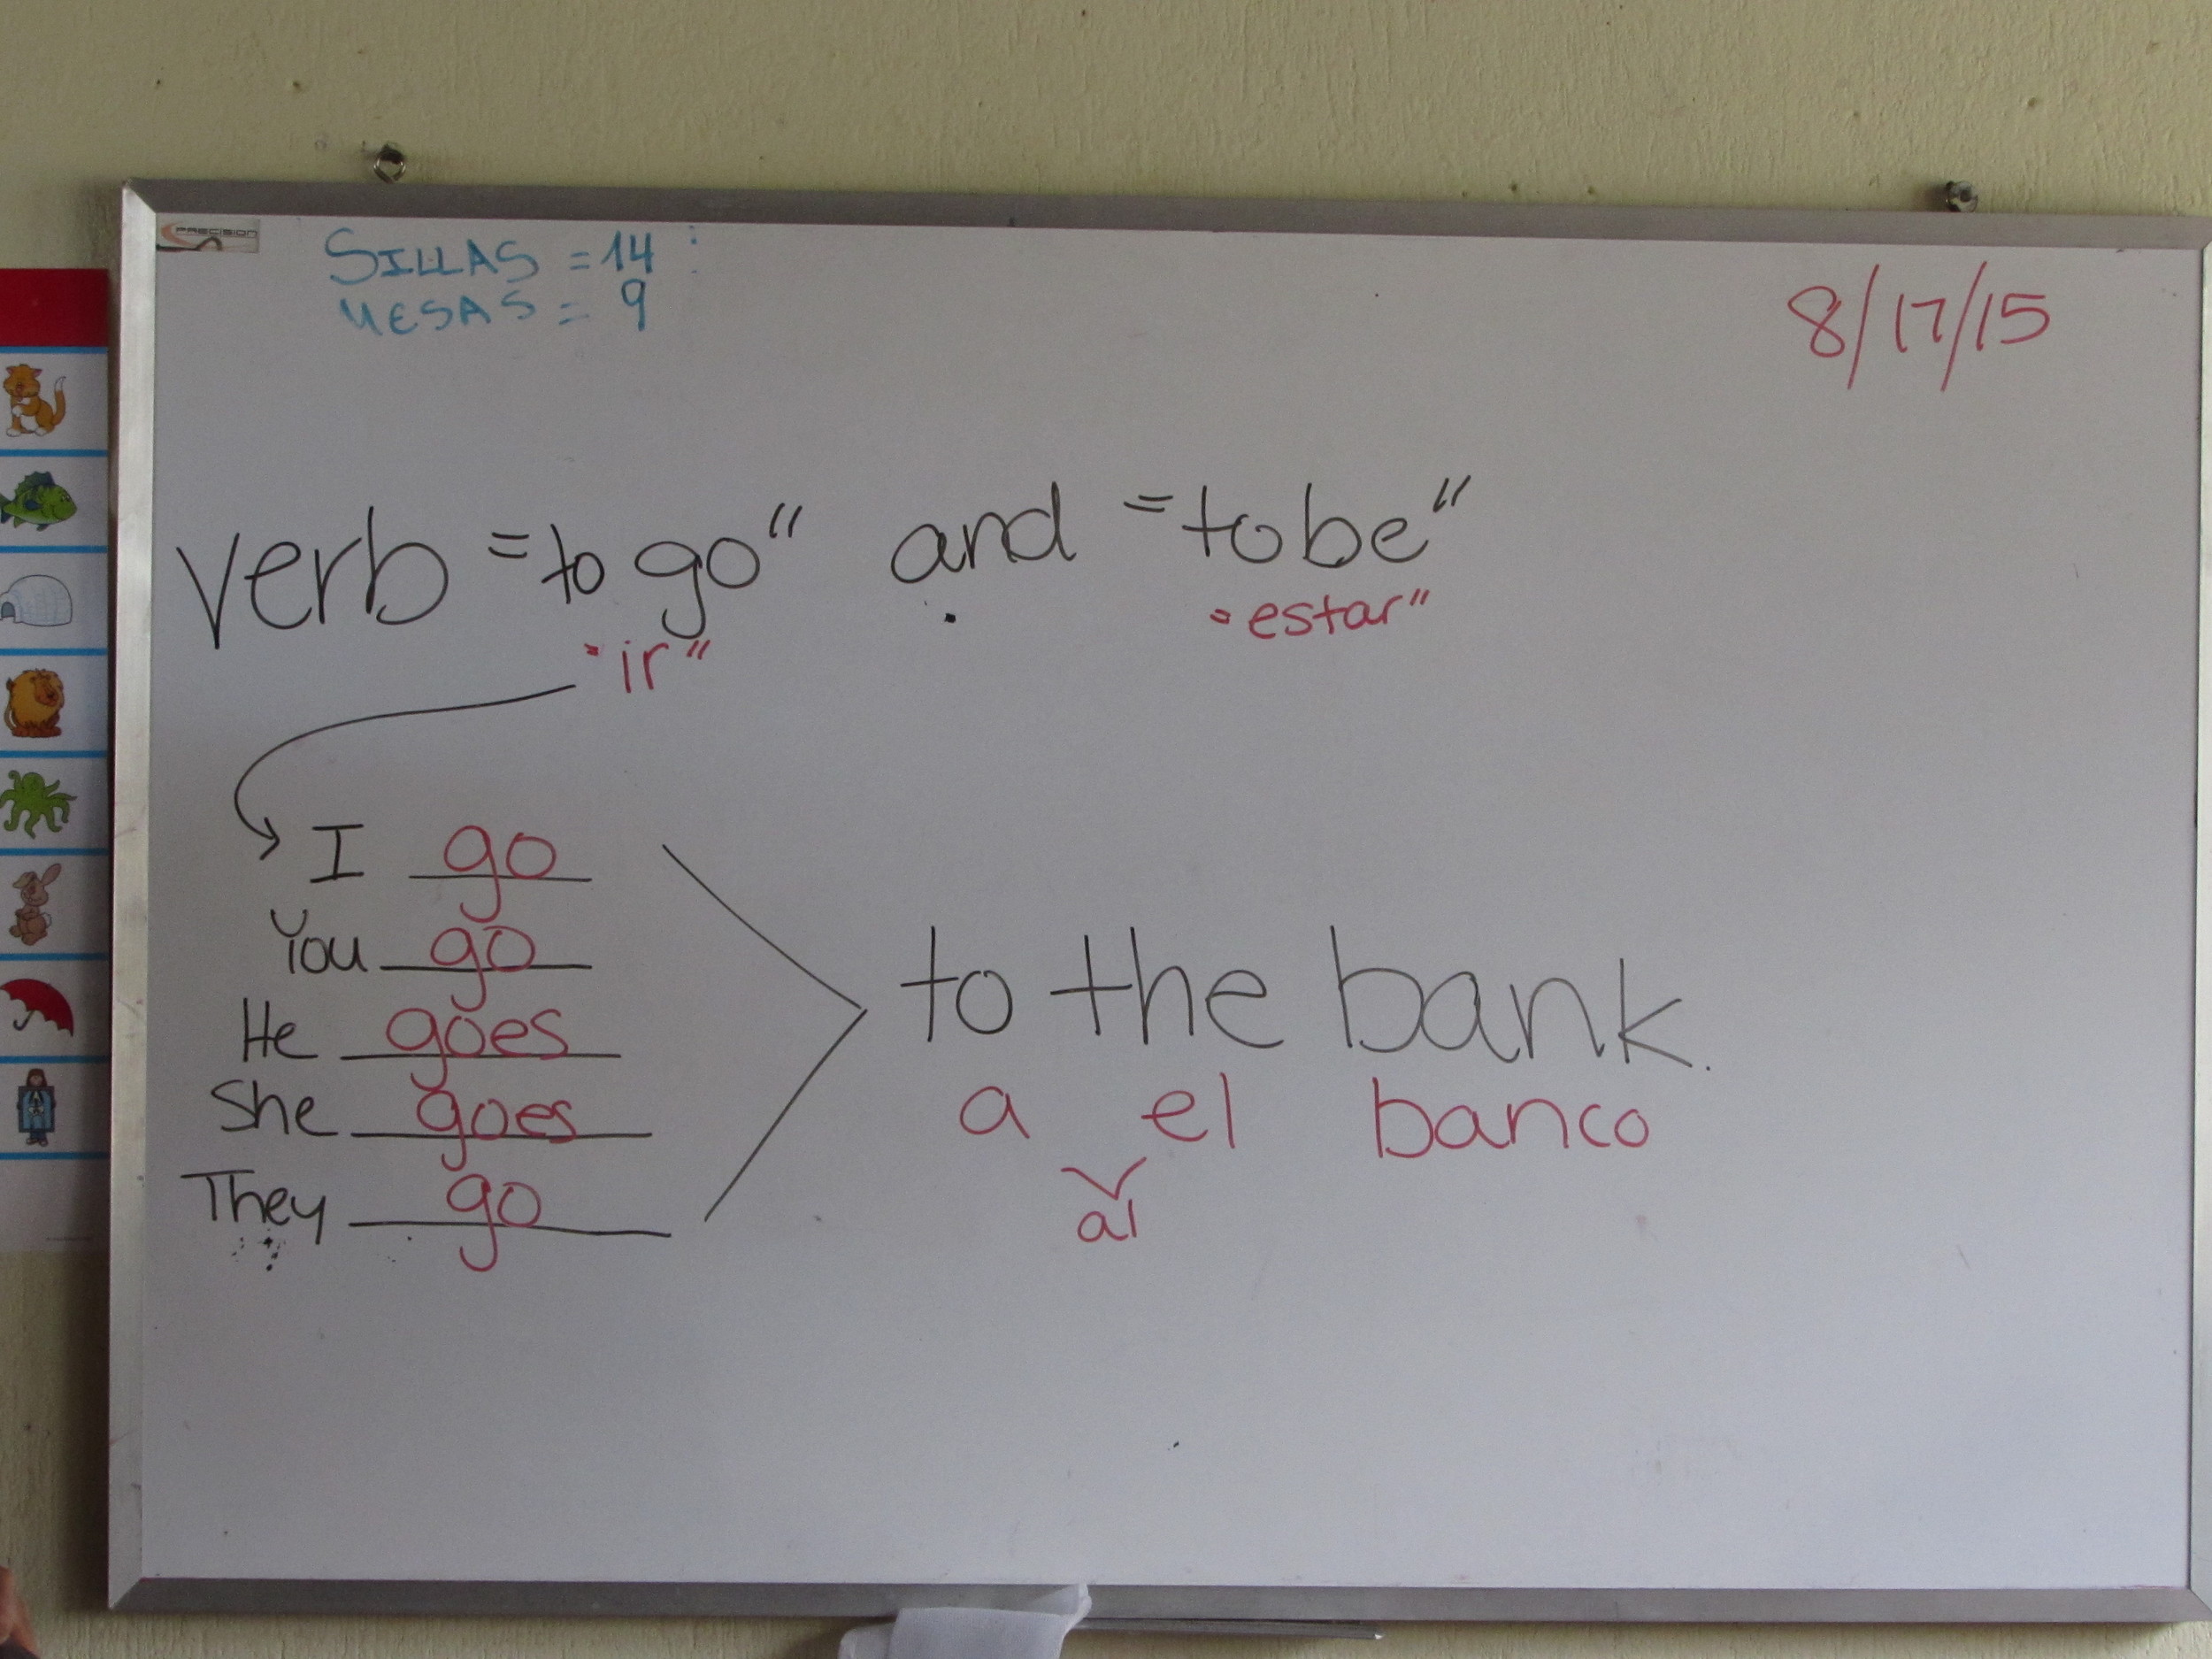 PRECISION
SILLAS = 14 :
MESAS = 9
8/17/15
verb "to go" and "to be"
"ir" "estar"
I go
You go
He goes
She goes
They go
to the bank.
a el banco
al